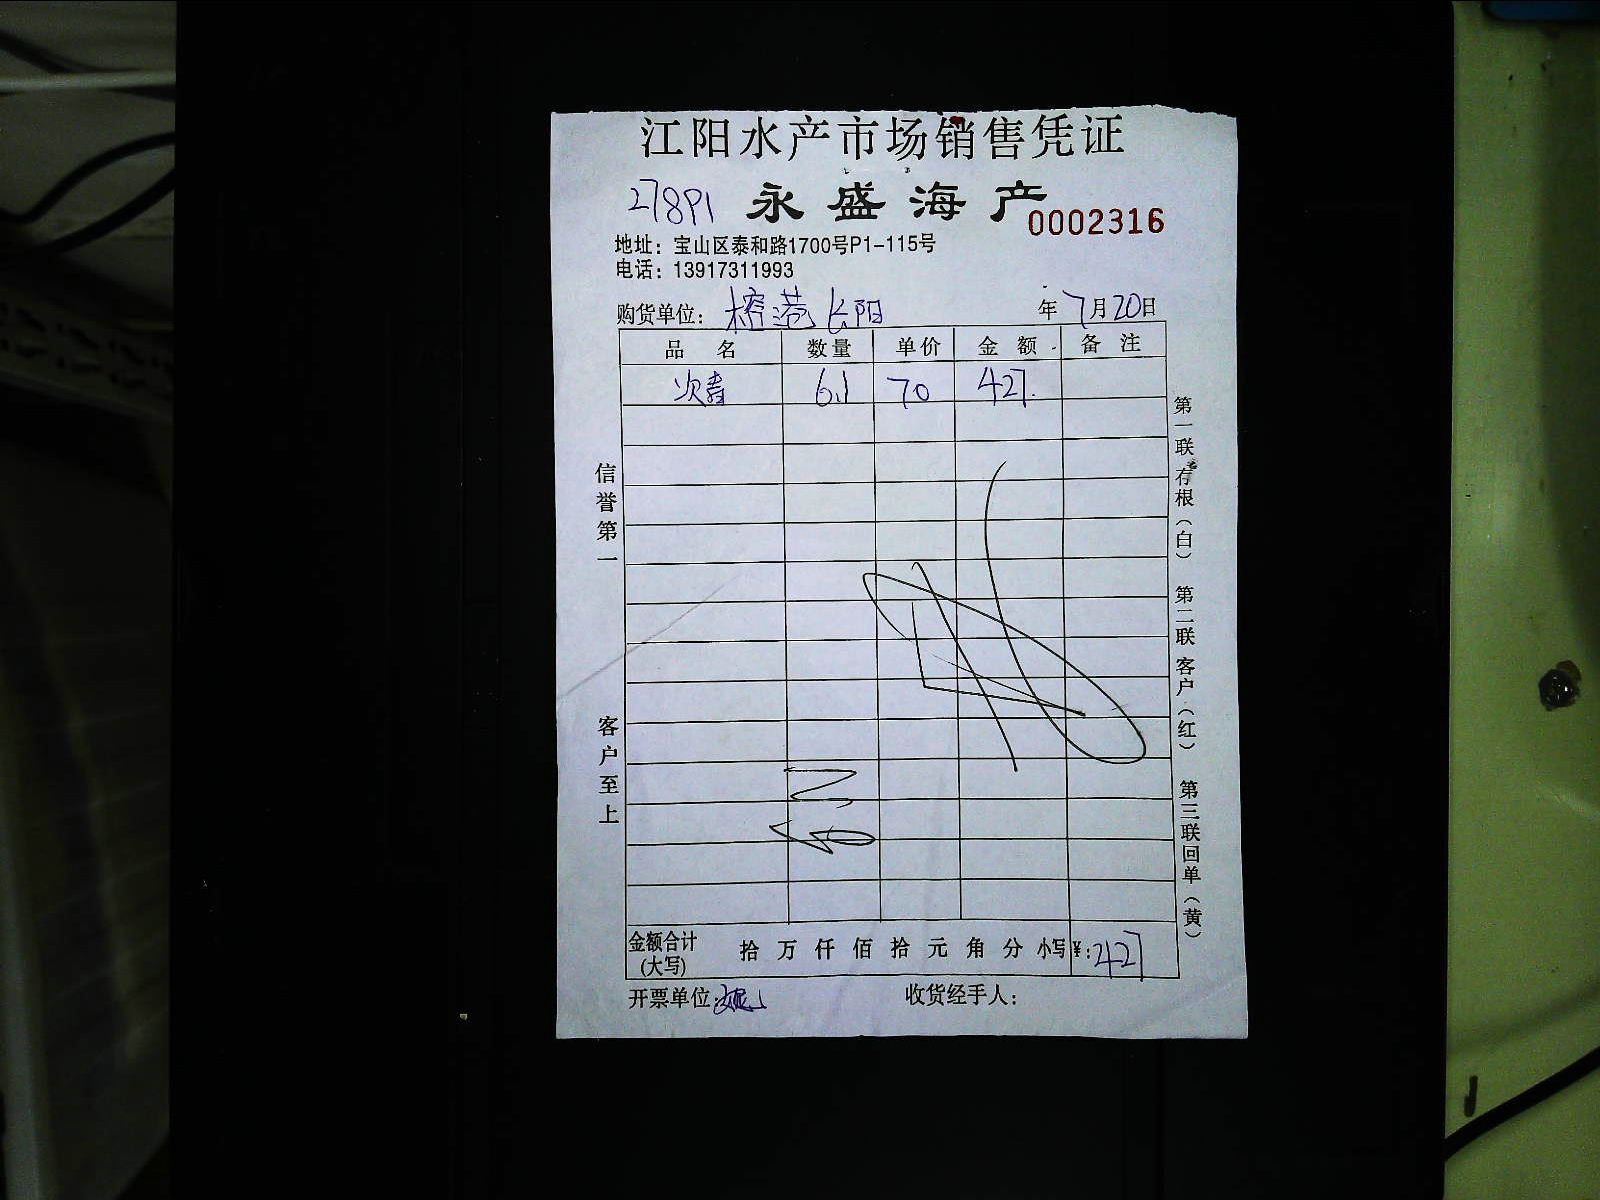 江阳水产市场销售凭证
27891 永盛海产 0002316
地址：宝山区泰和路1700号P1-115号
电话：13917311993
购货单位： 榕港 长阳 年 7月20日
品名 数量 单价 金额 备注
6.1 70 427.
信誉第一
客户至上
第一联存根（白）
第二联客户（红）
第三联回单（黄）
金额合计(大写) 拾 万 仟 佰 拾 元 角 分 小写 ¥：427
开票单位： 收货经手人：